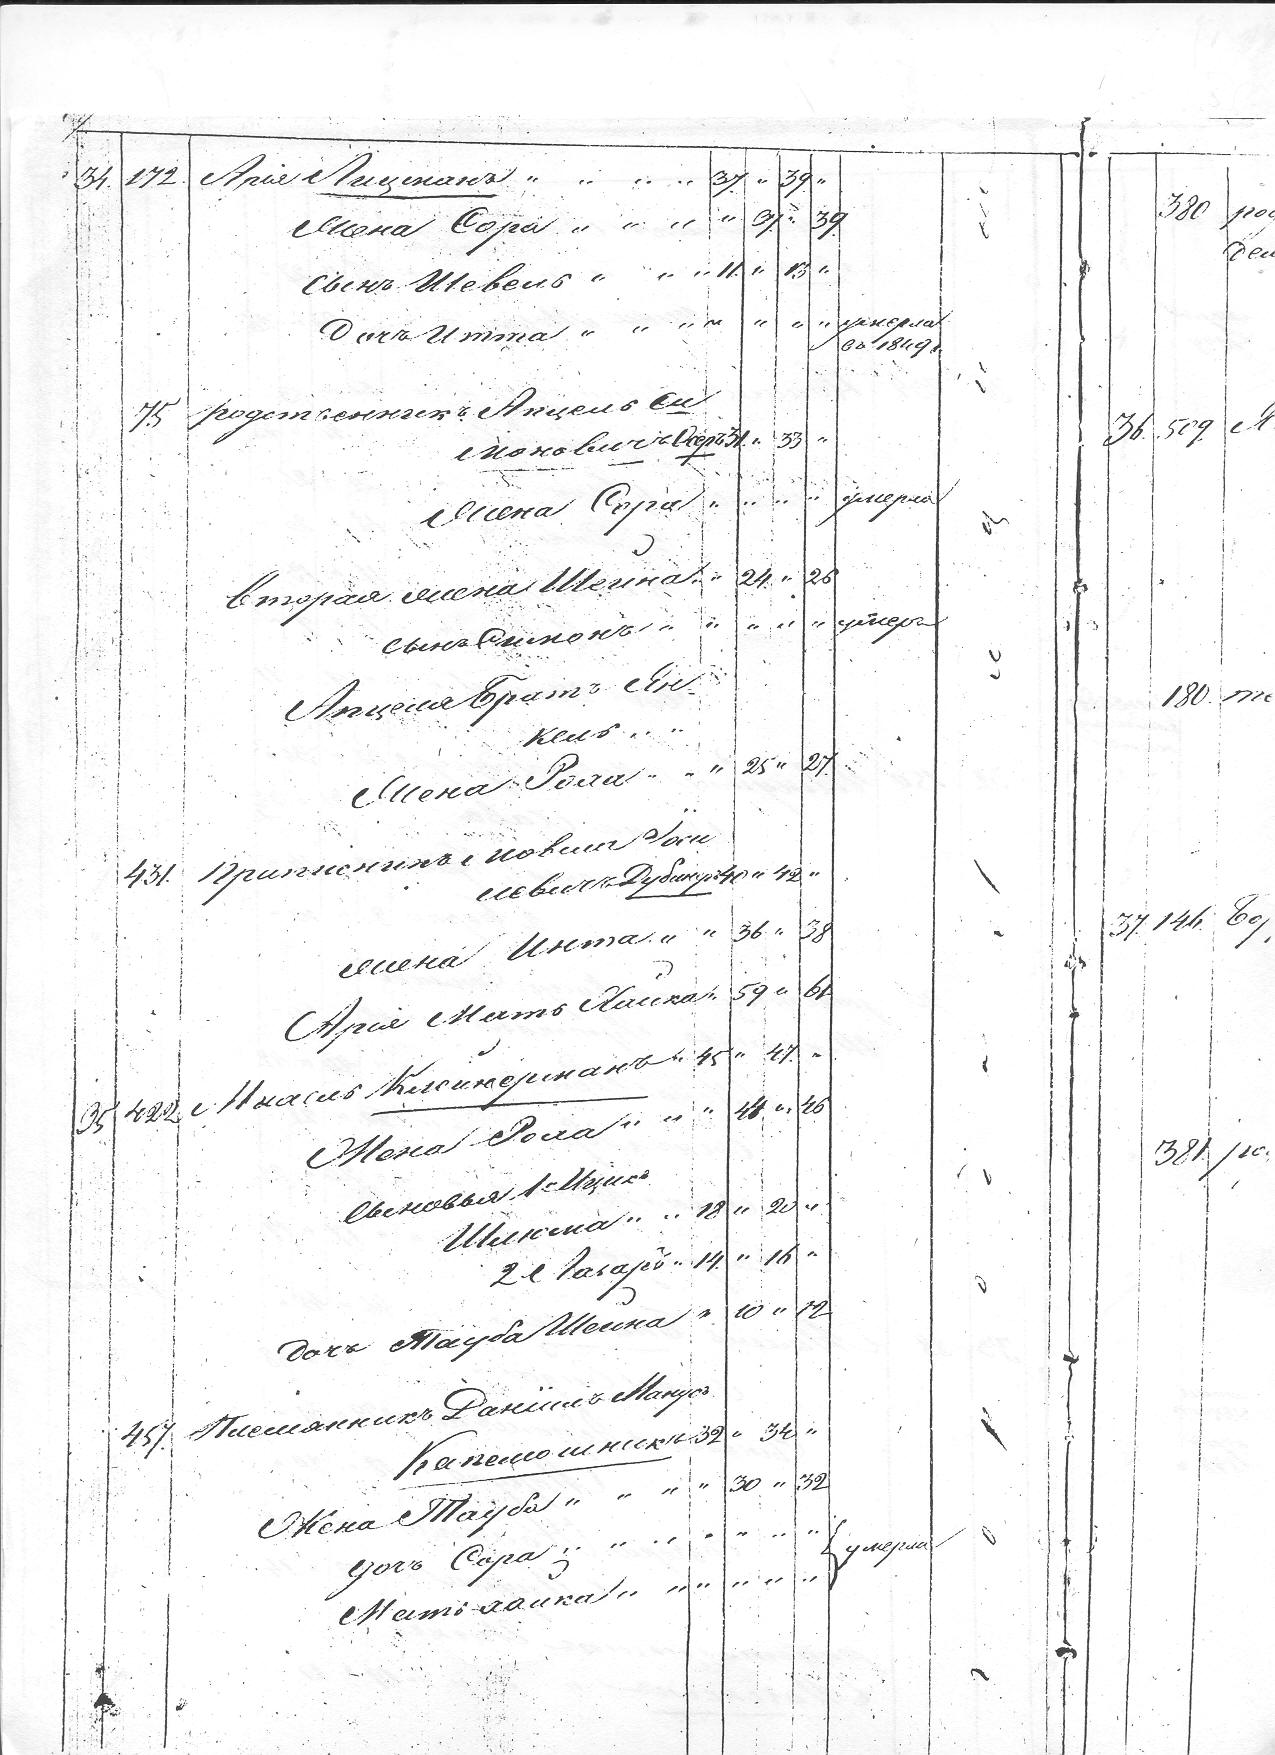 34. 172. Арія Лицманъ " " " " 37. " 39 "
Жена Сора " " " " 37. " 39.
сынъ Шевель " " " " 11. " 13 "
Дочь Итта " " " " " " " умерла
въ 1849 г.
75. родственникъ Анцель Си
моновичъ 31. " 33 "
Жена Сора " " " " умерла
Вторая жена Шейна " 24. " 26
сынъ Симонъ " " " " " умеръ
Анцеля Братъ Ян-
кель " "
Жена Рохля " " " 25 " 27.
431. Припісникъ Мовша Іоси
левичъ 40 " 42 "
жена Инта " " 36 " 38
Арія Мать Хайка " 59 " 61
35 422 Клейнерманъ " 45 " 47. "
Жена " " " 44 " 46
сыновья 1-й Ицик
Шлиома " " 18 " 20 "
2й " 14. " 16 "
дочь Тауба Шейна " 10 " 12
457. Племянникъ Даніилъ
Капелюшникъ 32 " 34 "
Жена Тауба " " " " 30 " 32
дочь Сора " " " " " " " умерла
Мать хаика " " " " " "
380
36. 509.
180.
37. 146.
381